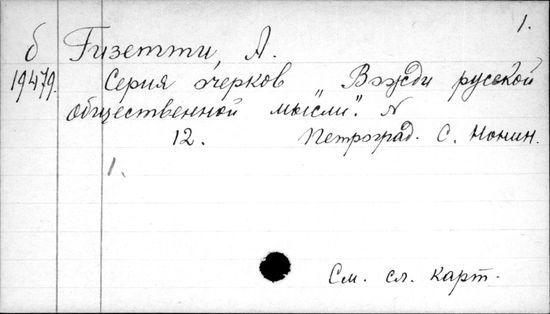 1.
б Гизетти, А.
19479. Серия очерков „Вожди русской
общественной мысли". N
12. Петроград. С. Нонин.
1.
См. сл. карт.